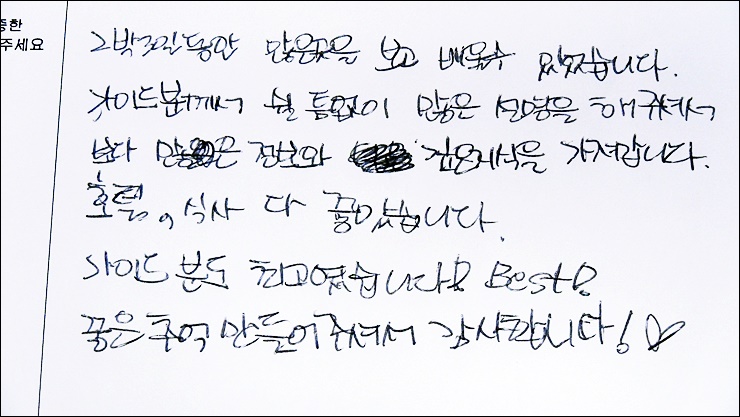 중한
주세요
2박3일동안 많은곳을 보고 배울수 있었습니다.
가이드분께서 쉴 틈없이 많은 설명을 해주셔서
보다 많은 정보와 깊은지식을 가져갑니다.
호텔, 식사 다 좋았습니다.
가이드 분도 최고였습니다! Best!
좋은 추억 만들어주셔서 감사합니다! ♡